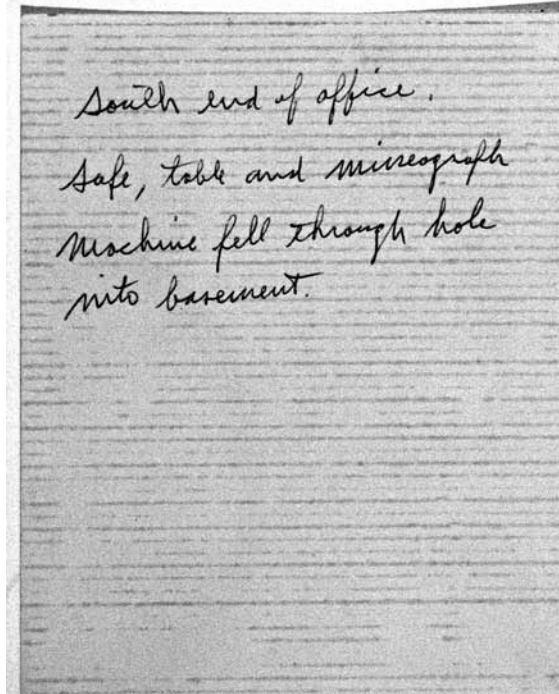 South end of office.
Safe, table and mimeograph
Machine fell through hole
into basement.